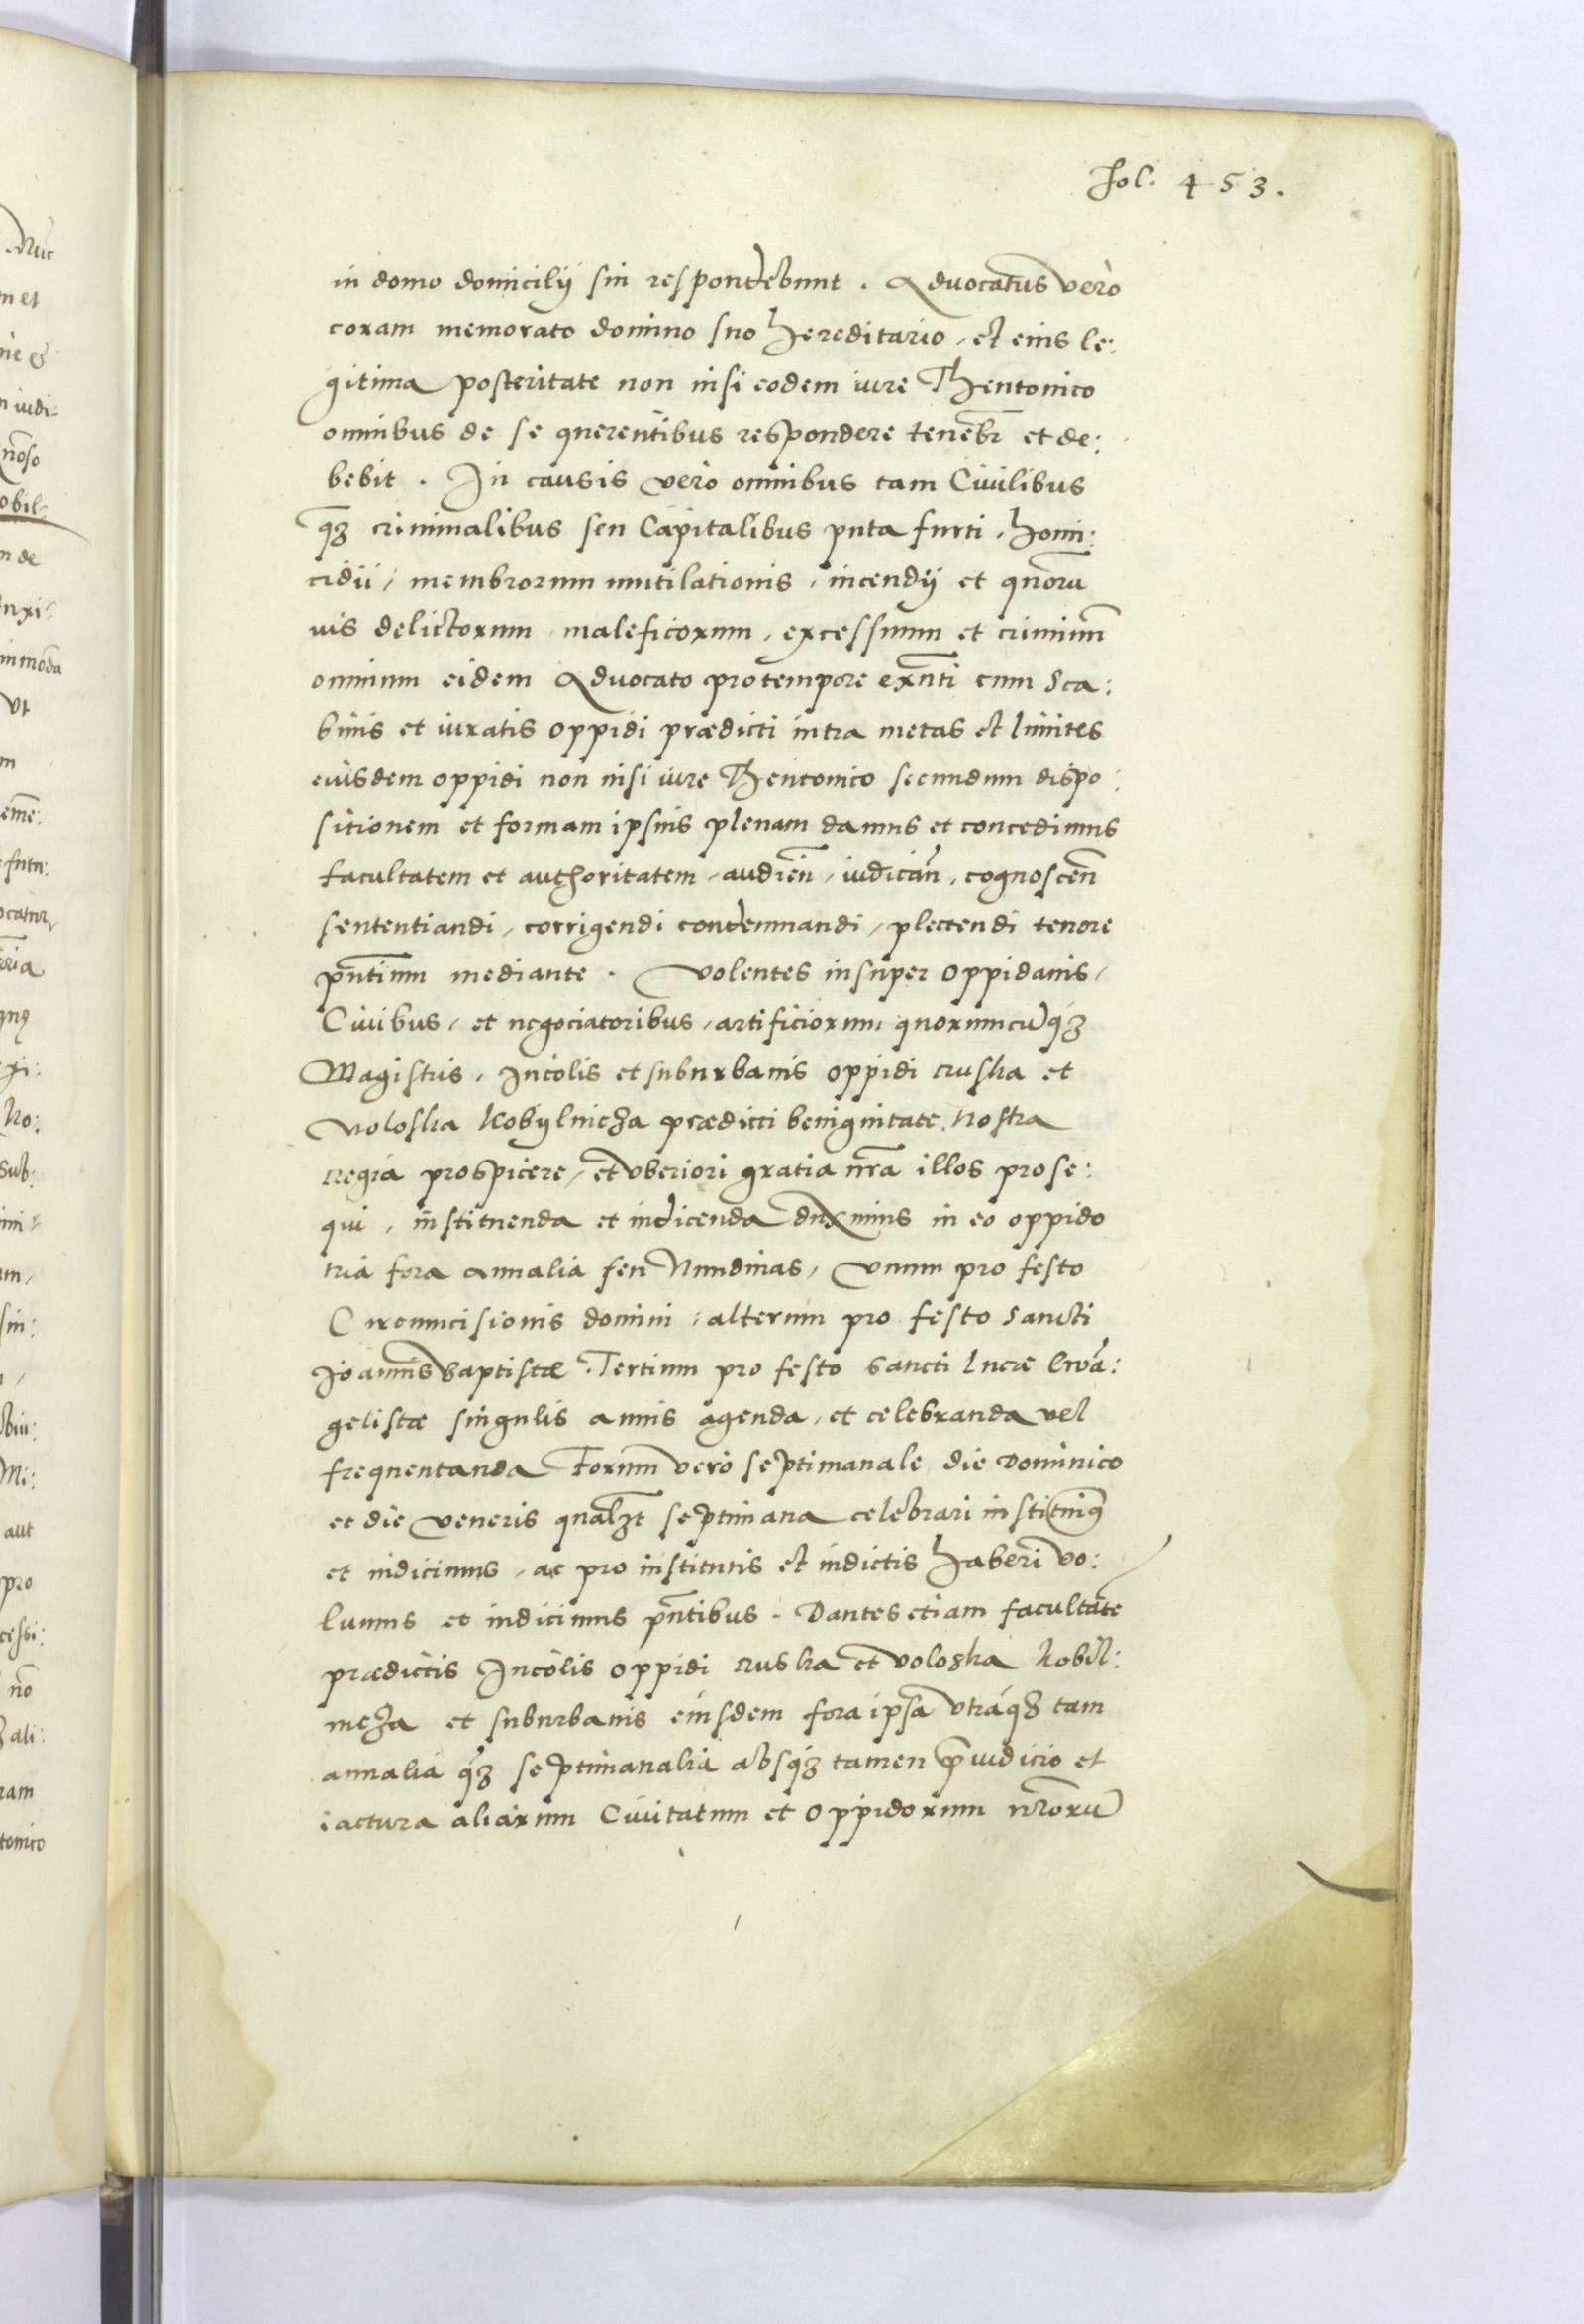 fol. 453.
in domo domicilÿ sui respondebunt. Aduocatus verò
coram memorato domino suo hereditario, et eius le:
gitima posteritate non nisi eodem iure Theutonico
omnibus de se querentibus respondere teneb̃r et de:
bebit. In causis vero omnibus tam Ciuilibus
q̃ꝫ criminalibus seu Capitalibus puta furti, homi:
cidii, membrorum mutilationis, incendÿ et quorũ
uis delictorum maleficorum, excessuum et criminũ
omnium eidem Aduocato pro tempore exñti cum Sca:
binis et iuratis oppidi prædicti intra metas et limites
eiusdem oppidi non nisi iure Theutonico secundum dispo:
sitionem et formam ipsius plenam damus et concedimus
facultatem et authoritatem, audień, iudicań, cognosceñ
sententiandi, corrigendi condemnandi, plectendi tenore
p̃ntium mediante. Volentes insuper oppidanis,
Ciuibus, et negociatoribus, artificiorum quorumcũqꝫ
Magistris, Incolis et suburbanis oppidi ruska et
Voloska Kobÿlnicza prædicti benignitate nostra
regia prospicere, et vberiori gratia nr̃a illos prose:
qui, instituenda et indicenda duximus in eo oppido
tria fora annalia seu Nundinas, Vnum pro festo
Circumcisionis domini, alterum pro festo Sancti
Joannis Baptistæ. Tertium pro festo Sancti Lucæ Evã:
gelistæ singulis annis agenda, et celebranda vel
frequentanda Forum verò septimanale die Dominico
et die Veneris qualꝫt septimana celebrari instituimꝰ
et indicimus, ac pro institutis et indictis haberi vo:
lumus et indicimus p̃ntibus. Dantes etiam facultatẽ
prædictis Incolis oppidi ruska et Voloska Kobil:
nicza et suburbanis eiusdem fora ipsa vtráqꝫ tam
annalia q̃ꝫ septimanalia absqꝫ tamen p̃iudicio et
iactura aliarum Ciuitatum et oppidorum nr̃orũ